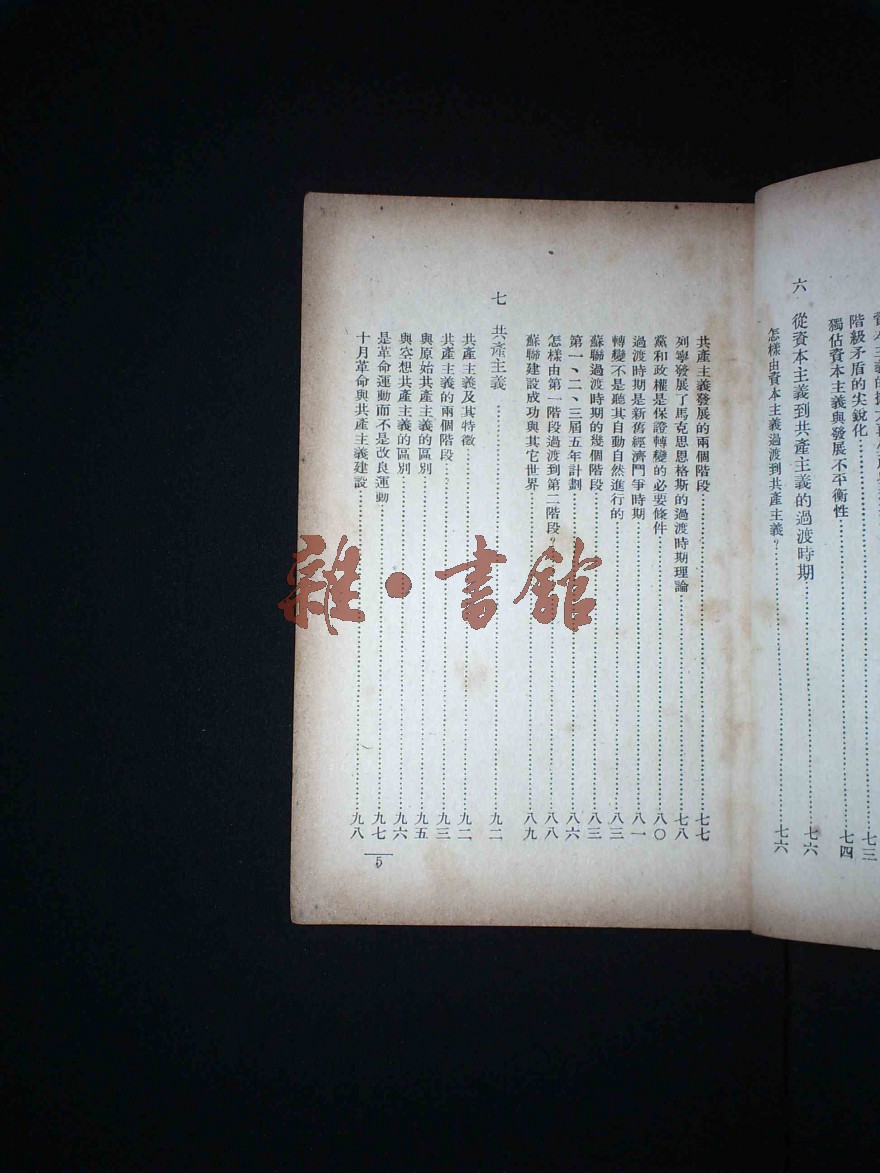 階級矛盾的尖銳化……七三
獨佔資本主義與發展不平衡性……七四
六 從資本主義到共產主義的過渡時期……七六
怎樣由資本主義過渡到共產主義？……七六
共產主義發展的兩個階段……七七
列寧發展了馬克思恩格斯的過渡時期理論……七八
黨和政權是保證轉變的必要條件……八〇
過渡時期是新舊經濟鬥爭時期……八一
轉變不是聽其自動自然進行的……八三
蘇聯過渡時期的幾個階段……八三
第一、二、三屆五年計劃……八六
怎樣由第一階段過渡到第二階段？……八八
蘇聯建設成功與其它世界……八九
七 共產主義……九二
共產主義及其特徵……九二
共產主義的兩個階段……九三
與原始共產主義的區別……九五
與空想共產主義的區別……九六
是革命運動而不是改良運動……九七
十月革命與共產主義建設……九八
5
雜·書館